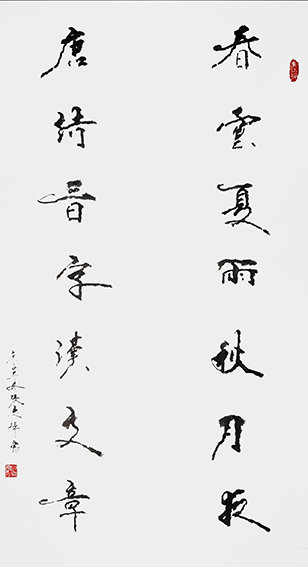 春雲夏雨秋月夜
唐綺晉字漢文章